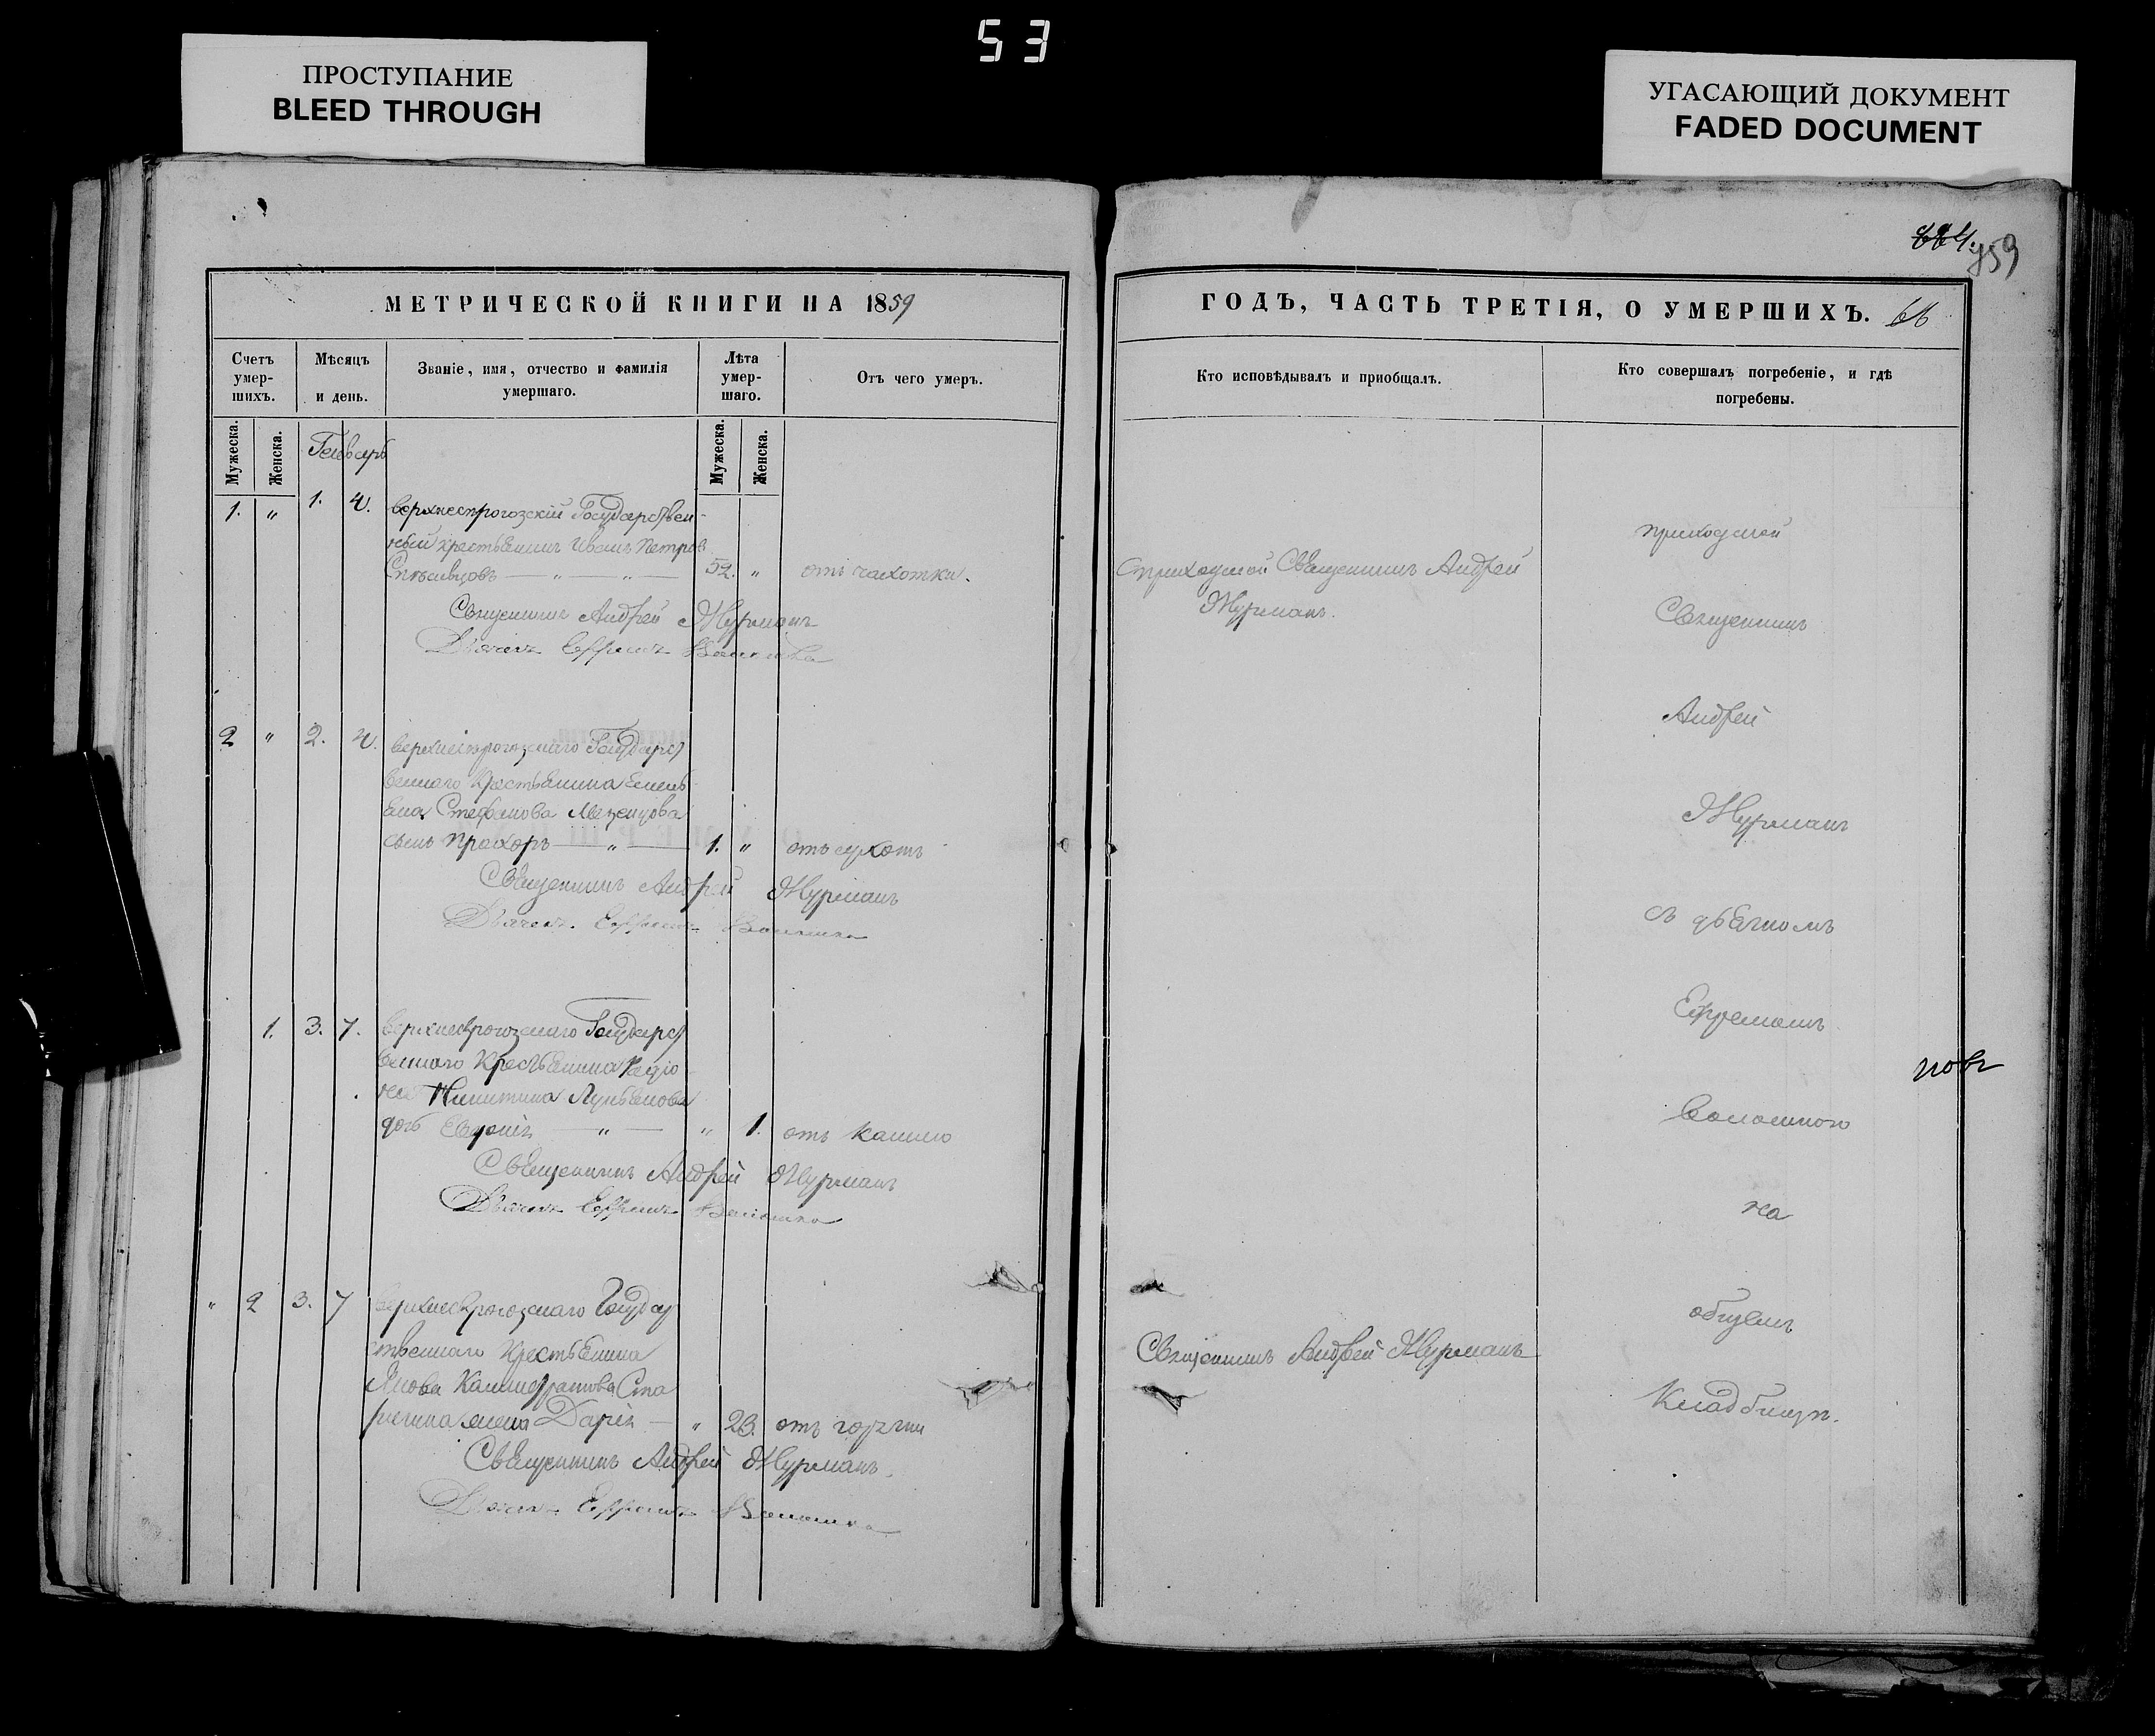 53
ПРОСТУПАНИЕ
BLEED THROUGH
УГАСАЮЩИЙ ДОКУМЕНТ
FADED DOCUMENT
959
МЕТРИЧЕСКОЙ КНИГИ НА 1859
Счетъ умер-шихъ.
Мѣсяцъ и день.
Званіе, имя, отчество и фамилія умершаго.
Лѣта умер-шаго.
Отъ чего умеръ.
Мужеска.
Женска.
Генварь
Мужеска.
Женска.
1. " 1. 4. Верхнесѣрогозскій Государствен-
ный крестьянинъ Иванъ Петровъ
Спѣсивцовъ — " — " — 52. " отъ чахотки.
Священникъ Андрей Журманъ
Дьячекъ Ефремъ
2 " 2. 4. Верхнесѣрогозскаго Государст
веннаго Крестьянина Емель
яна Стефанова Мезенцова
сынъ Прохоръ — " — 1. " отъ сухотъ
Священникъ Андрей Журманъ
Дьячекъ Ефремъ
1. 3. 7. Верхнесѣрогозскаго Государст
веннаго Крестьянина
Никитина Лукьянова
дочь — " — " 1. отъ кашлю
Священникъ Андрей Журманъ
Дьячекъ Ефремъ
" 2 3. 7 Верхнесѣрогозскаго Государ
ственнаго Крестьянина
Якова Ста
жена Дарія — " 23. отъ горячки
Священникъ Андрей Журманъ.
Дьячекъ Ефремъ
ГОДЪ, ЧАСТЬ ТРЕТІЯ, О УМЕРШИХЪ. 66
Кто исповѣдывалъ и приобщалъ.
Кто совершалъ погребеніе, и гдѣ
погребены.
приходской Священникъ Андрей
Журманъ.
Священникъ Андрей Журманъ
приходской
Священникъ
Андрей
Журманъ
съ дьячкомъ
Ефремомъ
на
общемъ
Кладбищѣ.